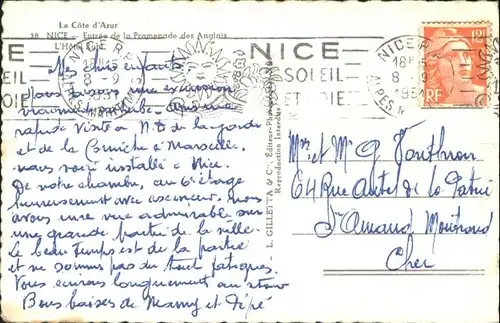 La Côte d'Azur
28 - NICE - Entrée de la Promenade des Anglais
L'Hôtel Ruhl
NICE
SOLEIL
ET JOIE
NICE R.P.
18H
8 - 9
195
ALPES M
12F
RF
Mes chers enfants
Nous faisons une excursion
vraiment superbe. Après une
rapide visite à N.D. de la garde
et de la Corniche à Marseille,
nous voici installés à Nice.
De notre chambre, au 6e étage
heureusement avec ascenseur, nous
avons une vue admirable sur
une grande partie de la ville.
Le beau temps est de la partie
et ne sommes pas du tout fatigués.
Vous écrirons longuement au
Bons baisers de Mémy et Pépé
L. GILETTA & Cie, Editeur-Phot
Reproduction Interdite
Mr et Me G.
64 Rue Autel de la Patrie
St Amand Montrond
Cher